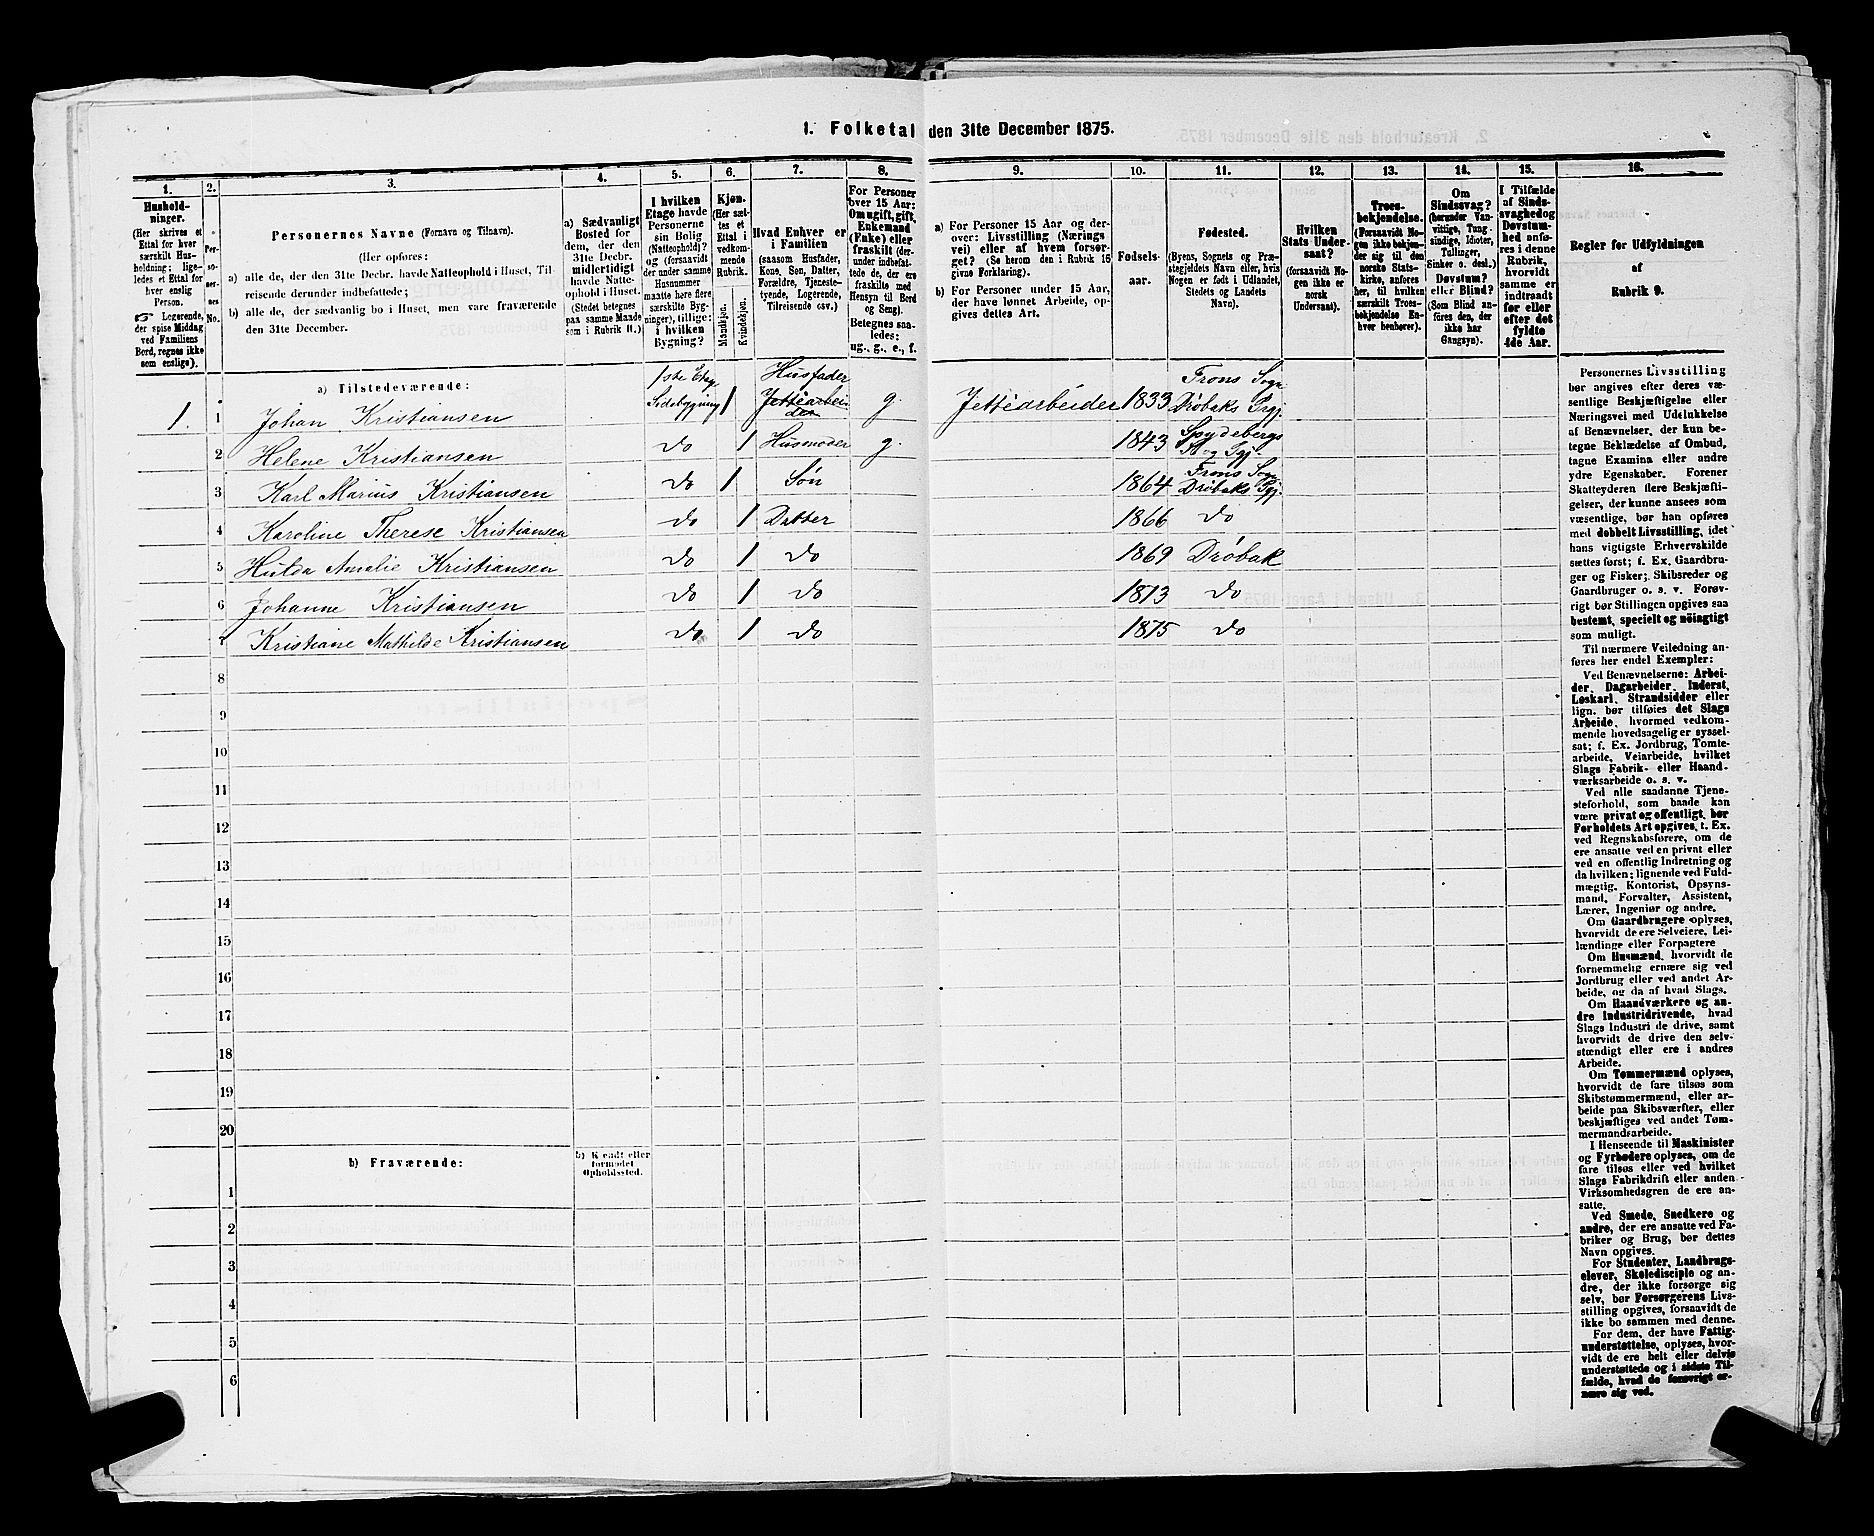 1. Folketal den 31te December 1875.
1.
Hushold-
ninger.
(Her skrives et
Ettal for hver
særskilt Hus-
holdning; lige-
ledes et Ettal for
hver enslig
Person.
☞ Logerende,
der spise Middag
ved Familiens
Bord, regnes ikke
som enslige).
2.
Per-
so-
ner-
nes
No.
3.
Personernes Navne (Fornavn og Tilnavn).
(Her opføres:
a) alle de, der den 31te Decbr. havde Natteophold i Huset, Til-
reisende derunder indbefattede;
b) alle de, der sædvanlig bo i Huset, men vare fraværende
den 31te December.
4.
a) Sædvanligt
Bosted for
dem, der den
31te Decbr.
midlertidigt
havde Natte-
ophold i Huset.
(Stedet betegnes
paa samme Maade
som i Rubrik 11.)
5.
I hvilken
Etage havde
Personerne
sin Bolig
(Natteophold)?
og (forsaavidt
der under samme
Husnummer
maatte høre flere
særskilte Byg-
ninger), tillige:
i hvilken
Bygning?
6.
Kjøn.
(Her sæt-
tes et
Ettal i
vedkom-
mende
Rubrik.
Mandkjøn.
Kvindekjøn.
7.
Hvad Enhver er
i Familien
(saasom Husfader,
Kone, Søn, Datter,
Forældre, Tjeneste-
tyende, Logerende,
Tilreisende osv.)
8.
For Personer
over 15 Aar:
Om ugift, gift,
Enkemand
(Enke) eller
fraskilt (der-
under indbefat-
tede de, der ere
fraskilte med
Hensyn til Bord
og Seng).
Betegnes saa-
ledes:
ug., g., e., f.
9.
a) For Personer 15 Aar og der-
over: Livsstilling (Nærings
vei) eller af hvem forsør-
get? (Se herom den i Rubrik 16
givne Forklaring).
b) For Personer under 15 Aar,
der have lønnet Arbeide, op-
gives dettes Art.
10.
Fødsels-
aar.
11.
Fødested.
(Byens, Sognets og Præ-
stegjeldets Navn eller, hvis
Nogen er født i Udlandet,
Stedets og Landets
Navn).
12.
Hvilken
Stats Under-
saat?
(forsaavidt No-
gen ikke er
norsk
Undersaat).
13.
Troes-
bekjendelse.
(Forsaavidt No-
gen ikke bekjen-
der sig til den
norske Stats-
kirke, anføres
her, til hvilken
særskilt Troes-
bekjendelse En-
hver henhører).
14.
Om
Sindssvag?
(herunder Van-
vittige, Tung-
sindige, Idioter,
Tullinger,
Sinker o. desl.)
Døvstum?
eller Blind?
(Som Blind an-
føres den, der
ikke har
Gangsyn).
15.
I Tilfælde
af Sinds-
svaghed og
Døvstum-
hed anfø-
res i denne
Rubrik,
hvorvidt
samme er
indtraadt
før eller
efter det
fyldte
4de Aar.
16.
Regler for Udfyldningen
af
Rubrik 9.
a) Tilstedeværende:
1. 1 Johan Kristiansen 1ste Etage Sidebygning 1 Husfader g. 1833 Frons Sogn Drøbaks Pgj.
2 Helene Kristiansen do 1 Husmoder g. 1843 Spydebergs S og Pgj.
3 Karl Marius Kristiansen do 1 Søn 1864 Frons Sogn Drøbaks Pgj.
4 Karoline Therese Kristiansen do 1 Datter 1866 do
5 Hulda Amalie Kristiansen do 1 do 1869 Drøbak
6 Johanne Kristiansen do 1 do 1873 do
7 Kristiane Mathilde Kristiansen do 1 do 1875 do
8
9
10
11
12
13
14
15
16
17
18
19
20
b) Fraværende:
b) Kjendt eller
formodet
Opholdssted.
1
2
3
4
5
6
Personernes Livsstilling
bør angives efter deres væ-
sentlige Beskjæftigelse eller
Næringsvei med Udelukkelse
af Benævnelser, der kun be-
tegne Beklædelse af Ombud,
tagne Examina eller andre
ydre Egenskaber. Forener
Skatteyderen flere Beskjæfti-
gelser, der kunne ansees som
væsentlige, bør han opføres
med dobbelt Livsstilling, idet
hans vigtigste Erhvervskilde
sættes først; f. Ex. Gaardbru-
ger og Fisker; Skibsreder og
Gaardbruger o. s. v. Forøv-
rigt bør Stillingen opgives saa
bestemt, specielt og nøiagtigt
som muligt.
Til nærmere Veiledning an-
føres her endel Exempler:
Ved Benævnelserne: Arbei-
der, Dagarbeider, Inderst,
Løskarl, Strandsidder eller
lign. bør tilføies det Slags
Arbeide, hvormed vedkom-
mende hovedsagelig er syssel-
sat; f. Ex. Jordbrug, Tomte-
arbeide, Veiarbeide, hvilket
Slags Fabrik- eller Haand-
værksarbeide o. s. v.
Ved alle saadanne Tjene-
steforhold, som baade kan
være privat og offentligt, bør
Forholdets Art opgives, t. Ex.
ved Regnskabsførere, om de
ere ansatte ved en privat eller
ved en offentlig Indretning og
da hvilken; lignende ved Fuld-
mægtig, Kontorist, Opsyns-
mand, Forvalter, Assistent,
Lærer, Ingeniør og andre.
Om Gaardbrugere oplyses,
hvorvidt de ere Selveiere, Lei-
lændinge eller Forpagtere
Om Husmænd, hvorvidt de
fornemmelig ernære sig ved
Jordbrug eller ved andet Ar-
beide, og da af hvad Slags.
Om Haandværkere og an-
dre Industridrivende, hvad
Slags Industri de drive, samt
hvorvidt de drive den selv-
stændigt eller ere i andres
Arbeide.
Om Tømmermænd oplyses,
hvorvidt de fare tilsøs som
Skibstømmermænd, eller ar-
beide paa Skibsværfter, eller
beskjæftiges ved andet Tøm-
mermandsarbeide.
I Henseende til Maskinister
og Fyrbødere oplyses, om de
fare tilsøs eller ved hvilket
Slags Fabrikdrift eller anden
Virksomhedsgren de ere an-
satte.
Ved Smede, Snedkere og
andre, der ere ansatte ved Fa-
briker og Brug, bør dettes
Navn opgives.
For Studenter, Landbrugs-
elever, Skoledisciple og an-
dre, der ikke forsørge sig
selv, bør Forsørgerens Livs-
stilling opgives, forsaavidt de
ikke bo sammen med denne.
For dem, der have Fattig-
understøttelse, oplyses, hvor-
vidt de ere helt eller delvis
understøttede og i sidste Til-
fælde, hvad de forøvrigt er-
nære sig ved.